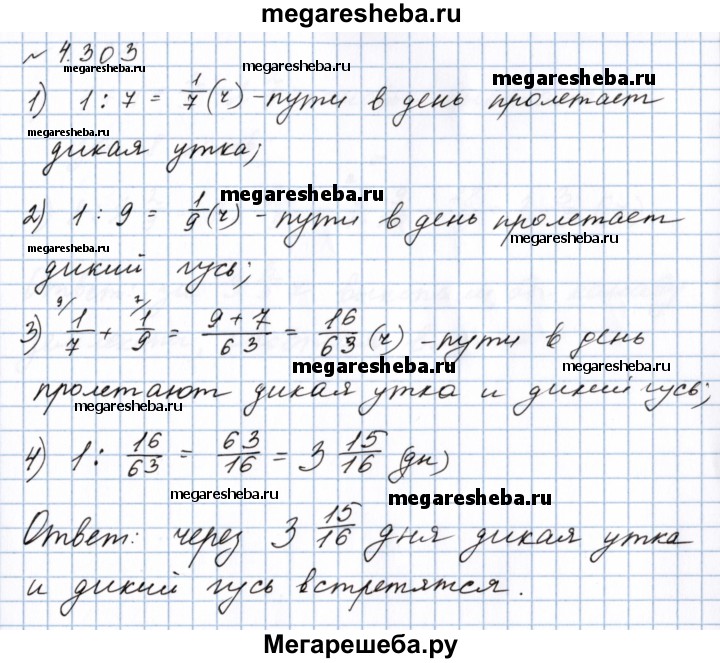 megaresheba.ru
№ 4.303
megaresheba.ru megaresheba.ru megaresheba.ru
1) 1 : 7 = 1/7 (ч) - пути в день пролетает
megaresheba.ru
дикая утка;
megaresheba.ru
2) 1 : 9 = 1/9 (ч) - пути в день пролетает
megaresheba.ru megaresheba.ru
дикий гусь;
3) 9/ 1/7 + 7/ 1/9 = 9+7/63 = 16/63 (ч) - пути в день
megaresheba.ru
пролетают дикая утка и дикий гусь;
megaresheba.ru megaresheba.ru
4) 1 : 16/63 = 63/16 = 3 15/16 (дн)
megaresheba.ru megaresheba.ru
Ответ: через 3 15/16 дня дикая утка
и дикий гусь встретятся.
Мегарешеба.ру